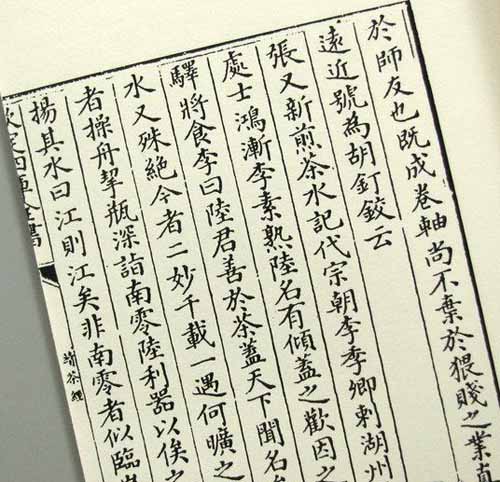 於師友也既成卷軸尚不棄於猥賤之業真
遠近號為胡釘鉸云
張又新煎茶水記代宗朝李季卿刺湖州
處士鴻漸李素熟陸名有傾蓋之歡因之
驛將食李曰陸君善於茶蓋天下聞名
水又殊絕今者二妙千載一遇何曠之
者操舟挈瓶深詣南零陸利器以俟之
揚其水曰江則江矣非南零者似臨
定四庫全書
續茶經